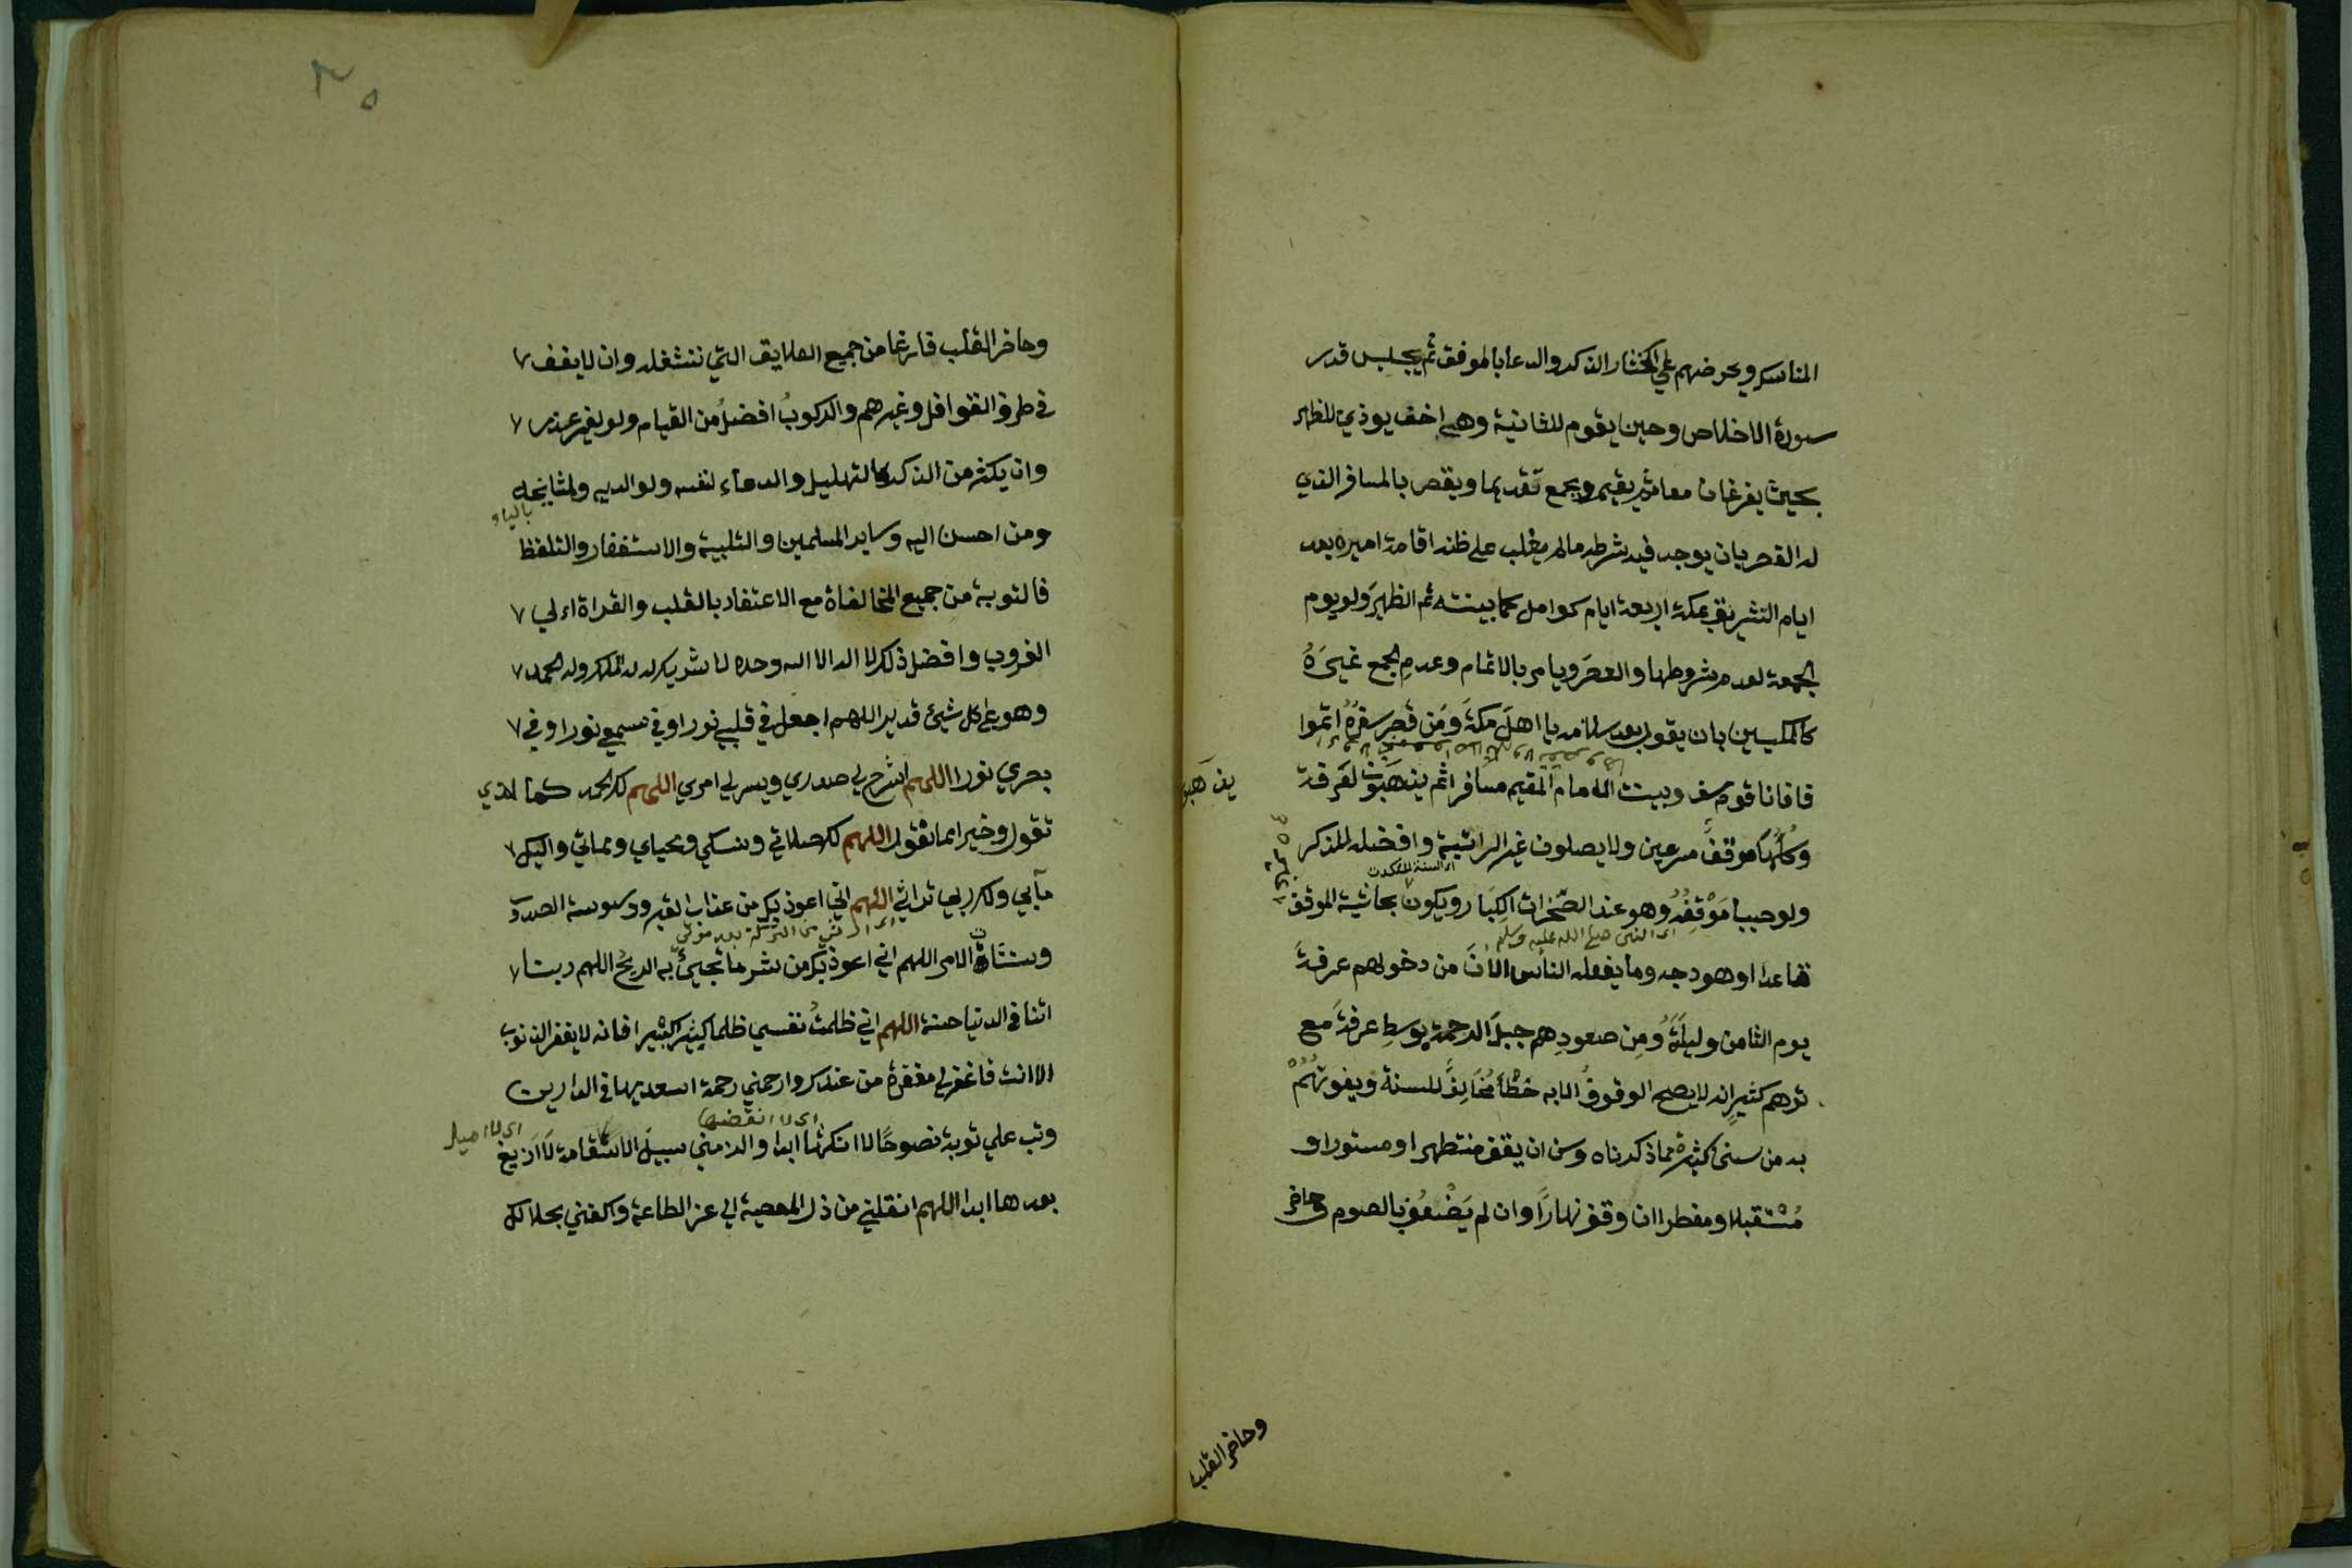 المناسك ويحرضهم علي اكثار الذكر والدعا بالموقف ثم يجلس قدر
سورة الاخلاص وحين يقوم للثانية وهي اخف يوذي للظهر
بحيث يفرغان معا ثم يقيم ويجمع تقديما ويقصر بالمسافر الذي
له القصر بان يوجد فيه شرطه مالم يغلب على ظنه اقامة اميره بعد
ايام التشريق بمكة اربعة ايام كوامل كما بينته ثم الظهر ولو يوم
الجمعة لعدم شروطها والعصر ويامر بالاتمام وعدم الجمع غيره
كالمكيين بان يقول بعد سلامه يا اهل مكة ومن قصر سفره اتموا
فافانا قوم سفر وبينت الامام المقيم مسافرا ثم يذهبون لعرفة
يذهبو
وكلها موقف مسرعين ولا يصلون غير الراتبة وافضله للذكر
اى السنة المؤكدة
ولو حبيبا موقفه وهو عند الصخرات الكبار ويكون بحاشية الموقف
اى النبي صلى الله عليه وسلم
قاعدا او هودجه وما يفعله الناس الان من دخولهم عرفة
يوم الثامن وليلة ومن صعودهم جبل الرحمة بوسط عرفة مع
توهم كثير انه لا يصح الوقوف الا به خطأ مخالف للسنة ويفوتهم
به من سنن كثيرة مما ذكرناه وسن ان يقف متطهرا ومستورا و
مستقبلا ومفطرا ان وقف نهارا وان لم يضعف بالصوم وحاضر
وحاضر القلب
٣٥
وحاضر القلب فارغا من جميع العلايق التي تشغله وان لا يقف
في طرق القوافل وغيرهم والركوب افضل من القيام ولو لغير عذر
وان يكثر من الذكر كالتهليل والدعاء لنفسه ولوالديه ولمشايخه
بالياء
ومن احسن اليه وساير المسلمين والتلبية والاستغفار والتلفظ
فالتوبة من جميع المخالفاة مع الاعتقاد بالقلب والقراة اولي
الغروب وافضل ذلك لا اله الا الله وحده لا شريك له له الملك وله الحمد
وهو على كل شيئ قدير اللهم اجعل في قلبي نورا وفي سمعي نورا وفي
بصري نورا اللهم اشرح لي صدري ويسر لي امري اللهم لك الحمد كما لذي
تقول وخيرا مما نقول اللهم لك صلاتي ونسكي ومحياي ومماتي واليك
مآبي ولك ربي تراثي اللهم اني اعوذ بك من عذاب القبر ووسوسة الصدر
وشتات الامر اللهم اني اعوذ بك من شر ما تجيئ به الريح اللهم ربنا
اتنا في الدنيا حسنة اللهم اني ظلمت نفسي ظلما كثيرا كبيرا فانه لا يغفر الذنوب
الا انت فاغفر لي مغفرة من عندك وارحمني رحمة اسعد بها في الدارين
اى لا انقضها
اى لا اميل
وتب علي توبة نصوحا لا انكثها ابدا والزمني سبيل الاستقامة لا ازيغ
بعدها ابدا اللهم انقلني من ذل المعصية الي عز الطاعة واكفني بحلالك